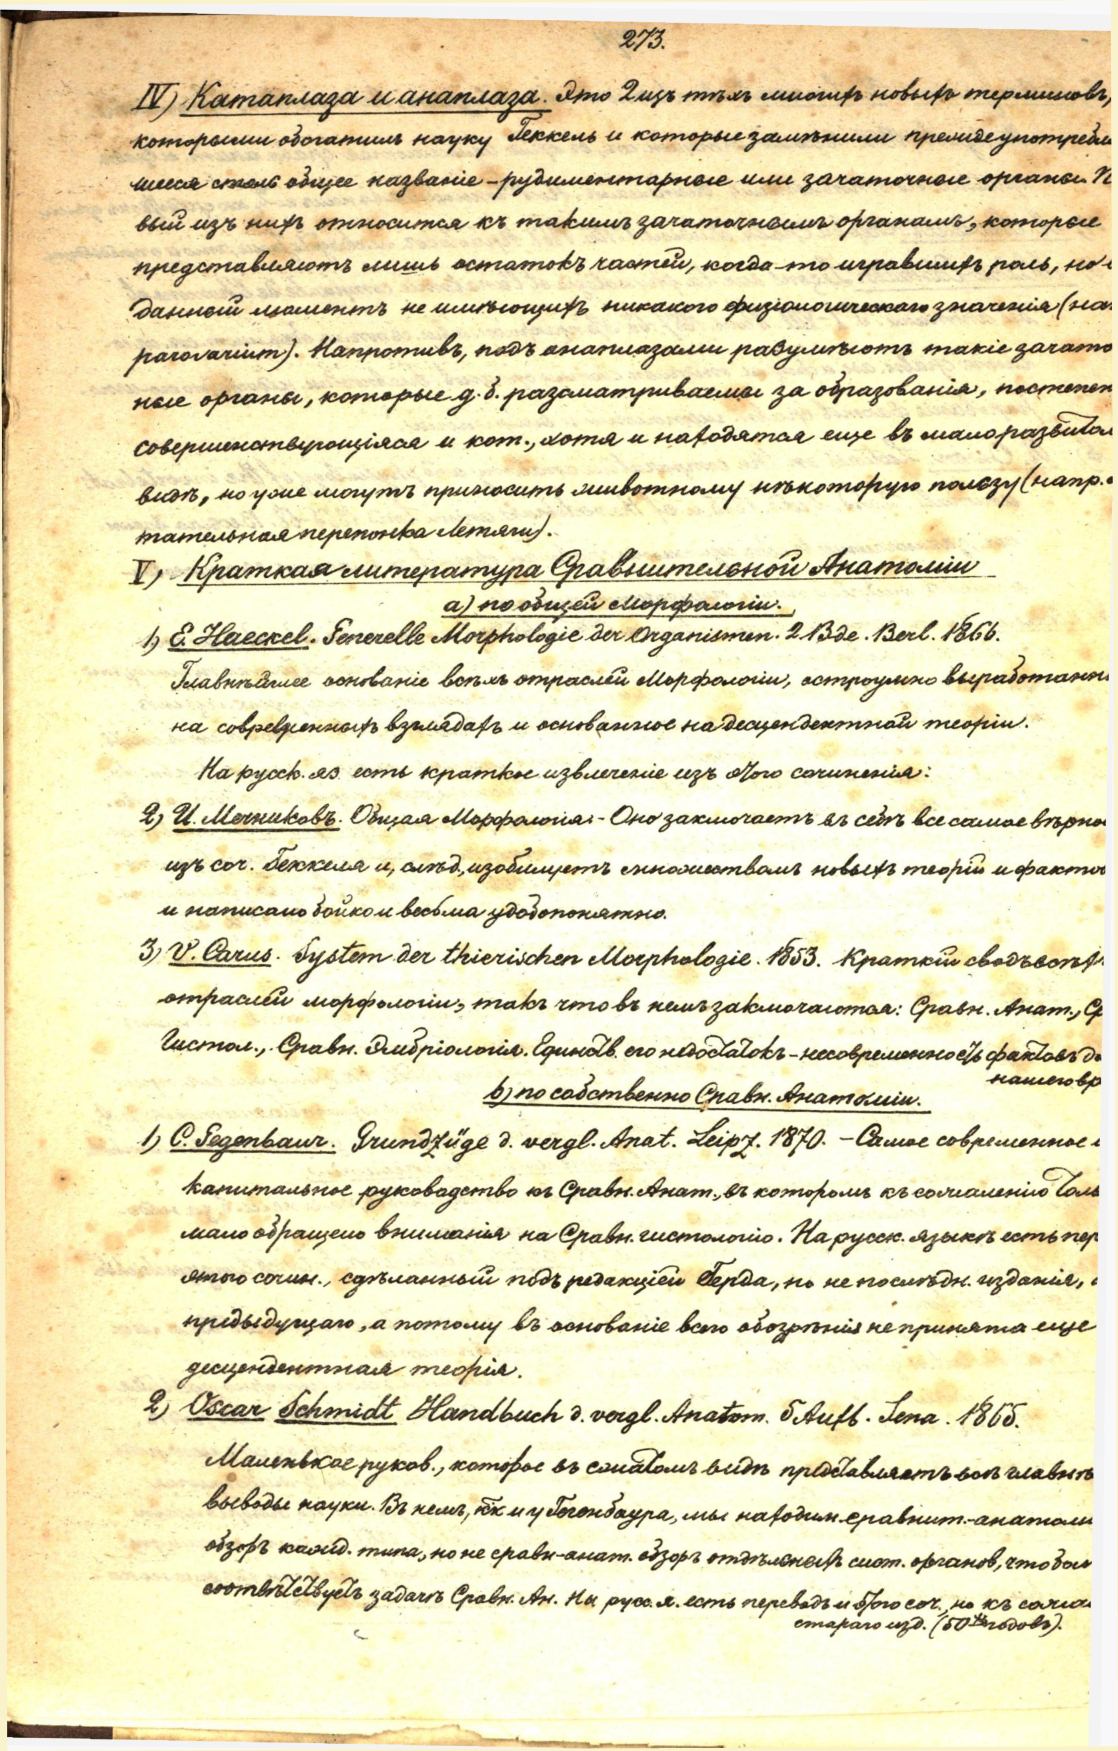 273.
IV) Катаплаза и анаплаза. Это 2 изъ тѣхъ многихъ новыхъ терминовъ,
которыми обогатилъ науку Геккель и которые замѣнили прежде употребля
шееся столь общее названіе – рудиментарные или зачаточные органы. П
вый изъ нихъ относится къ такимъ зачаточнымъ органамъ, которые
представляютъ лишь остатокъ частей, когда-то игравшихъ роль, но
данный моментъ не имѣющихъ никакого физіологическаго значенія (на
parovarium). Напротивъ, подъ анаплазами разумѣютъ такіе зачато
ные органы, которые д. б. разсматриваемы за образованія, постепен
совершенствующіяся и кот., хотя и находятся еще въ мало развитом
видѣ, но уже могутъ приносить животному нѣкоторую пользу (напр.
тательная перепонка Летяги).
V) Краткая литература Сравнительной Анатоміи
a) по общей Морфологіи.
1) E. Haeckel. Generelle Morphologie der Organismen. 2 Bde. Berl. 1866.
Главнѣйшее основаніе всѣхъ отраслей Морфологіи, остроумно выработанн
на современныхъ взглядахъ и основанное на десцендентной теоріи.
На русск. яз. есть краткое извлеченіе изъ этого сочиненія:
2) И. Мечниковъ. Общая Морфологія. – Оно заключаетъ въ себѣ все самое вѣрно
изъ соч. Геккеля и, слѣд., изобилуетъ множествомъ новыхъ теорій и фактов
и написано бойко и весьма удобопонятно.
3) V. Carus. System der thierischen Morphologie. 1853. Краткій сводъ всѣх
отраслей морфологіи, такъ что въ немъ заключаются: Сравн. Анат., Ср
Гистол., Сравн. Эмбріологія. Единств. его недостатокъ – несовременность фактовъ д
нашего вр
b) по собственно Сравн. Анатоміи.
1) C. Gegenbaur. Grundzüge d. vergl. Anat. Leipz. 1870. – Самое современное
капитальное руководство къ Сравн. Анат., въ которомъ къ сожаленію толь
мало обращено вниманія на Сравн. гистологію. На русск. языкѣ есть пер
этого сочин., сдѣланный подъ редакціей Герда, но не послѣдн. изданія,
предыдущаго, а потому въ основаніе всего обозрѣнія не принята еще
десцендентная теорія.
2) Oscar Schmidt Handbuch d. vergl. Anatom. 5 Aufl. Jena. 1865.
Маленькое руков., которое въ сжатомъ видѣ представляетъ всѣ главнѣ
выводы науки. Въ немъ, тк и у Гегенбаура, мы находим сравнит.-анатоми
обзоръ кажд. типа, но не сравн-анат. обзоръ отдѣльныхъ сист. органов, что бол
соотвѣтствуетъ задачѣ Сравн. Ан. На русс. я. есть переводъ и этого соч., но къ сожал
стараго изд. (50ыхъ годовъ).